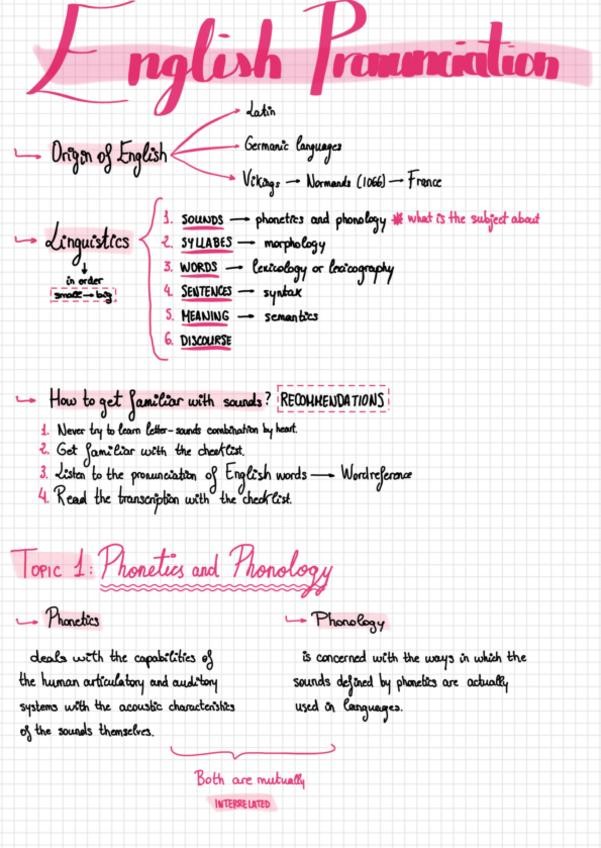 English Pronunciation
Latin
Origin of English
Germanic languages
Vikings → Normands (1066) → France
Linguistics
in order
small → big
1. SOUNDS → phonetics and phonology * what is the subject about
2. SYLLABES → morphology
3. WORDS → lexicology or lexicography
4. SENTENCES → syntax
5. MEANING → semantics
6. DISCOURSE
How to get familiar with sounds? RECOMMENDATIONS
1. Never try to learn letter-sounds combination by heart.
2. Get familiar with the checklist.
3. Listen to the pronunciation of English words → Wordreference
4. Read the transcription with the checklist.
TOPIC 1: Phonetics and Phonology
Phonetics
deals with the capabilities of
the human articulatory and auditory
systems with the acoustic characteristics
of the sounds themselves.
Phonology
is concerned with the ways in which the
sounds defined by phonetics are actually
used in languages.
Both are mutually
INTERRELATED